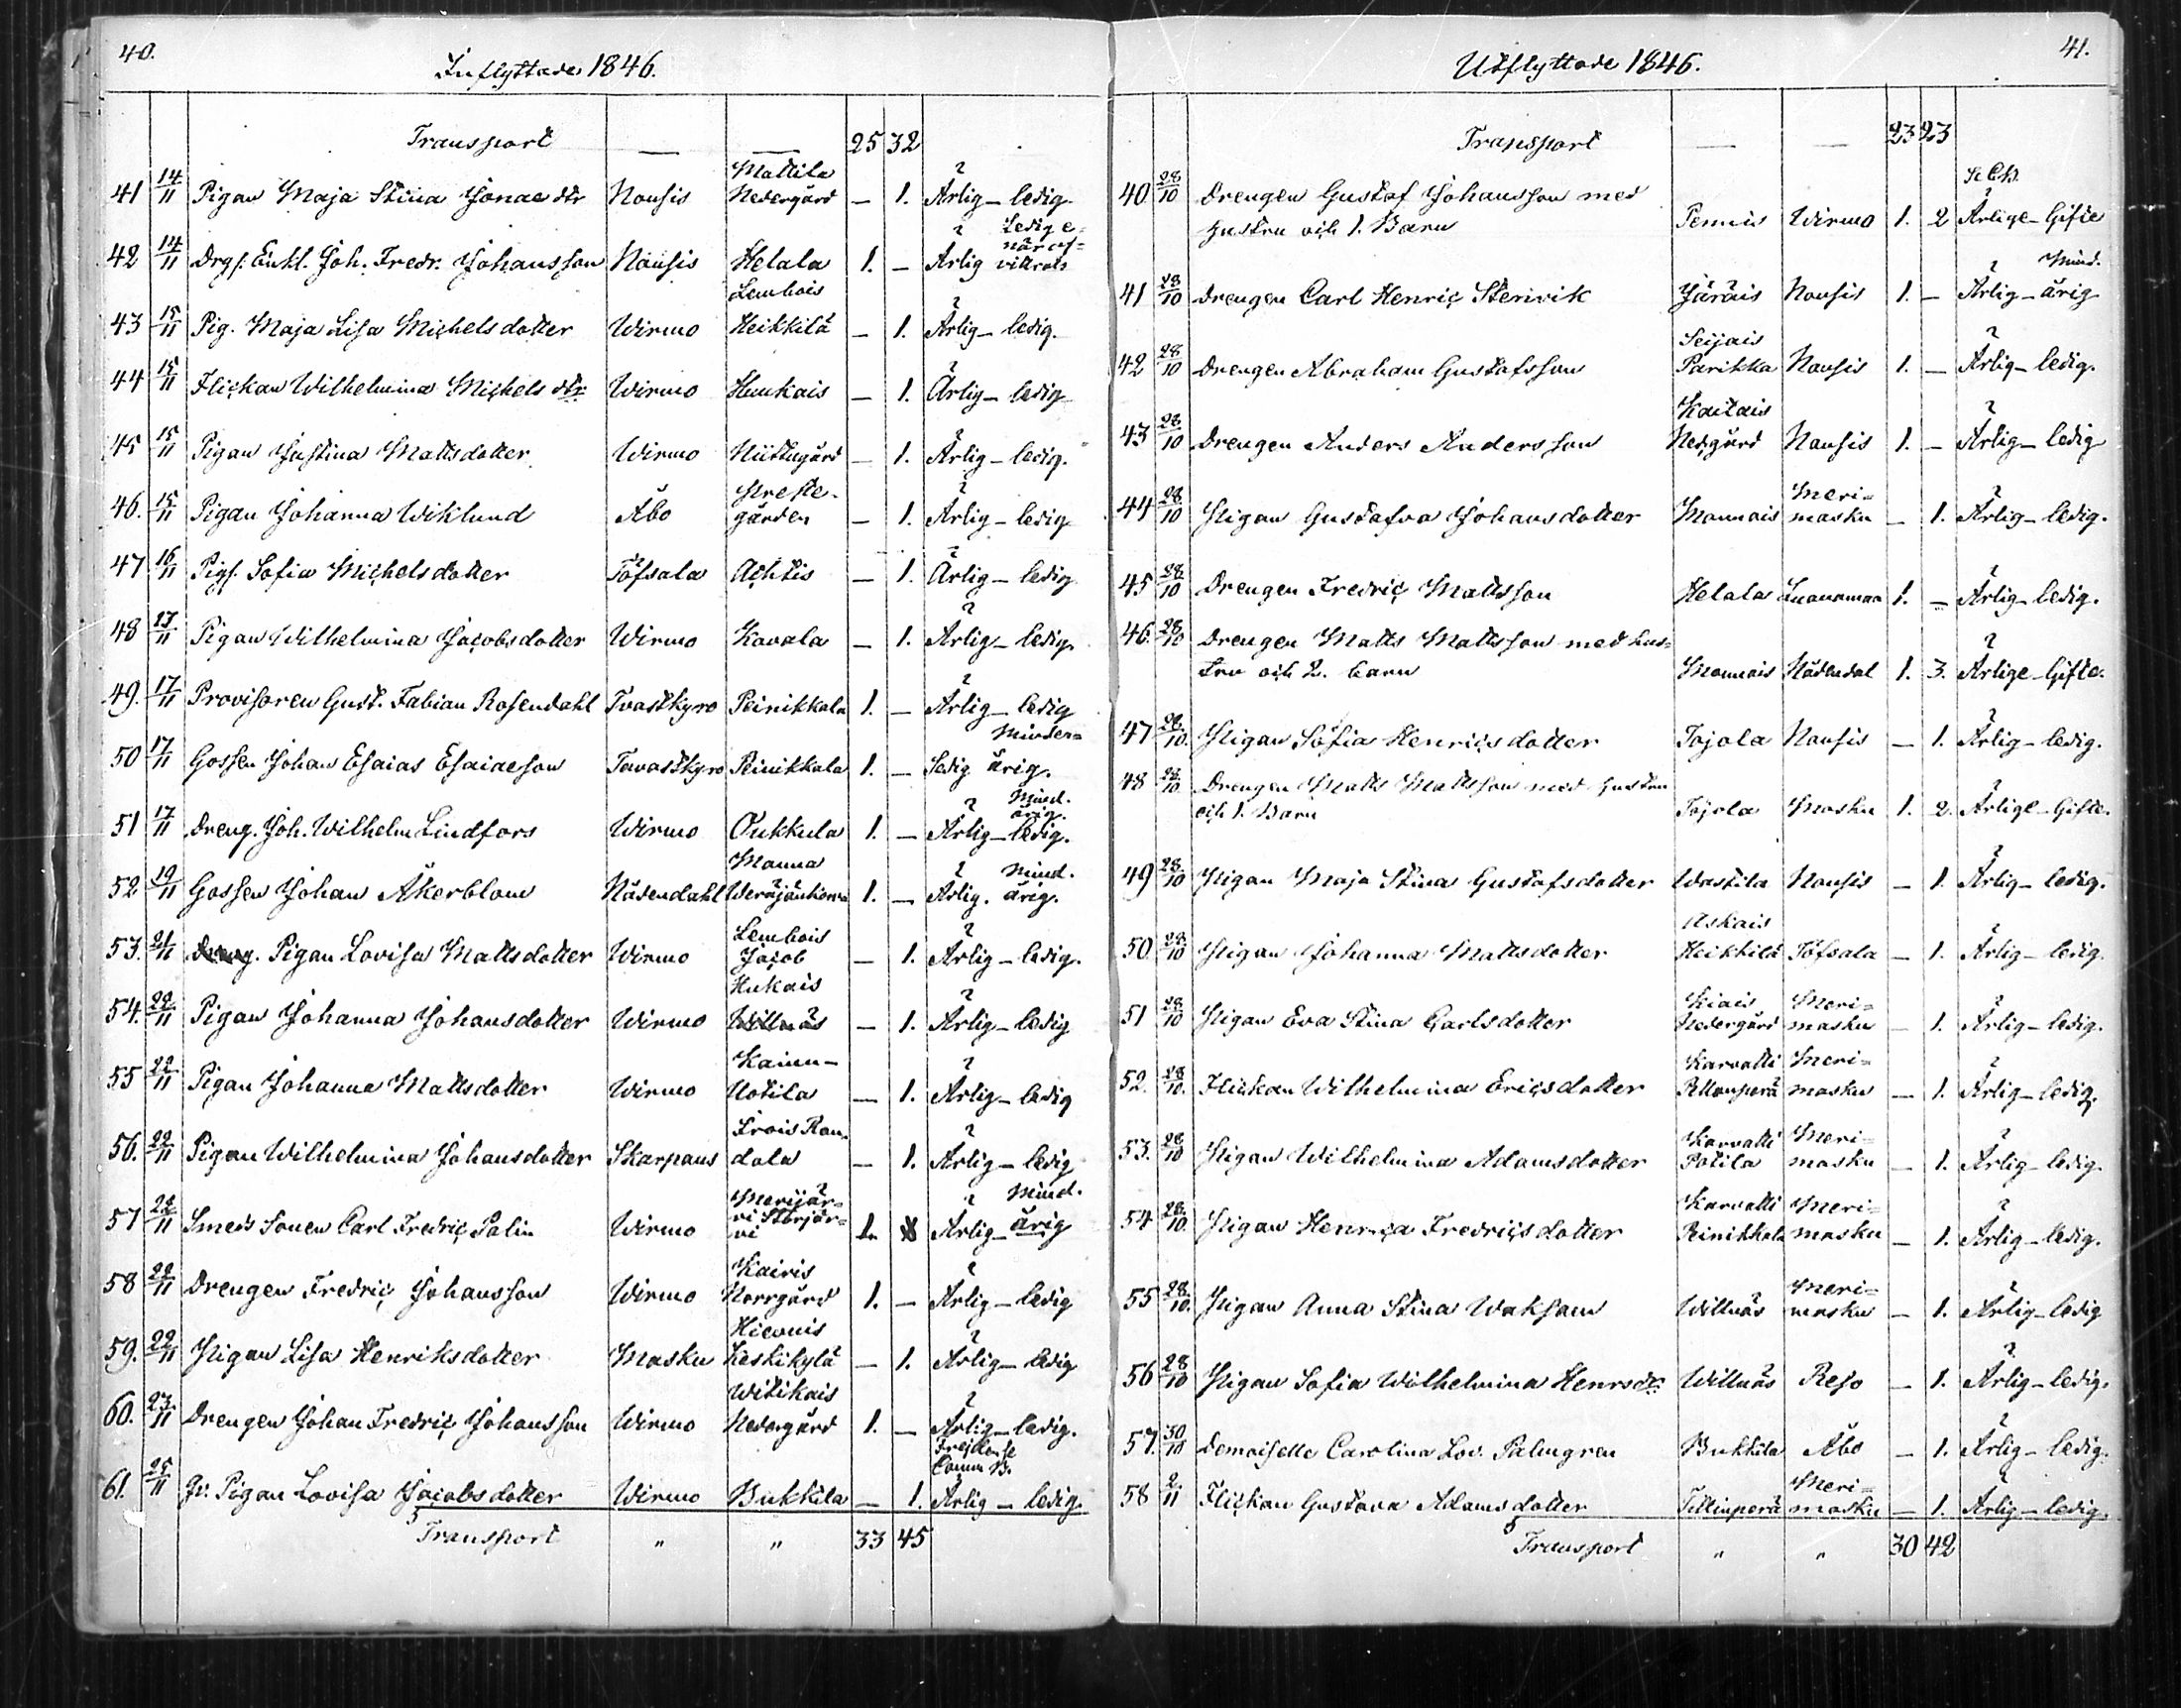 40.
Inflyttade 1846.
Transport — — 25 32
41 14/11 Pigan Maja Stina Jonae dtr Nousis Mattila Nedergård — 1. Ärlig – ledig.
42 14/11 Drgs. Enkl. Joh. Fredr. Johansson Nousis Helala 1. — Ärlig Ledig e-
43 15/11 Pig. Maja Lisa Michelsdotter Wirmo Lembois Heikkilä — 1. Ärlig – ledig.
44 15/11 Flickan Wilhelmina Michels dtr Wirmo Hunkais — 1. Ärlig – ledig
45 15/11 Pigan Justina Mattsdotter Wirmo Niittugård — 1. Ärlig – ledig.
46. 15/11 Pigan Johanna Wiklund Åbo Preste-gården — 1. Ärlig – ledig
47 16/11 Pigs. Sofia Michelsdotter Töfsala Achtis — 1. Ärlig – ledig
48 17/11 Pigan Wilhelmina Jacobsdotter Wirmo Kavala — 1. Ärlig – ledig.
49. 17/11 Provisoren Gust. Fabian Rosendahl Tvastkyro Peinikkala 1. — Ärlig – ledig
50 17/11 Gossen Johan Esaias Esaiaeson Tavastkyro Peinikkala 1. — Ledig Minder-årig.
51 17/11 Dreng. Joh. Wilhelm Lindfors Wirmo Pukkula 1. — Ärlig – ledig. Mind. årig.
52 19/11 Gossen Johan Åkerblom Nådendahl Manna 1. — Ärlig. Mind. årig.
53. 21/11 Pigan Lovisa Mattsdotter Wirmo Lembois Jacob — 1. Ärlig – ledig.
54. 22/11 Pigan Johanna Johansdotter Wirmo Hukais Willnäs — 1. Ärlig – ledig
55 22/11 Pigan Johanna Mattsdotter Wirmo Kainu- Uotila — 1. Ärlig – ledig
56. 22/11 Pigan Wilhelmina Johansdotter Skarpans Irois Ran-dala — 1. Ärlig – ledig
57 22/11 Smeds Sonen Carl Fredric Palin Wirmo Merijär-vi Storjär-vi 1. Ärlig – Mind. årig
58 22/11 Drengen Fredric Johansson Wirmo Kairis Norrgård 1. — Ärlig – ledig
59. 22/11 Pigan Lisa Henriksdotter Masku Hievuis Keskikylä — 1. Ärlig – ledig
60. 23/11 Drengen Johan Fredric Johansson Wirmo Witikais Nedergård 1. — Ärlig – ledig.
61. 25/11 Pigan Lovisa Jacobsdotter Wirmo Bukkila — 1. Ärlig – ledig.
Transport " " 33 45
41.
Utflyttade 1846.
Transport — — 23 23
40. 28/10 Drengen Gustaf Johansson med
hustru och 1. Barn Pennis Wirmo 1. 2 Ärlige – Gifte
41 28/10 Drengen Carl Henric Stenvik Järäis Nousis 1. — Ärlig – Mind. årig
42 28/10 Drengen Abraham Gustafsson Seijais Parikka Nousis 1. — Ärlig – ledig.
43 28/10 Drengen Anders Andersson Kaitais Nedgård Nousis 1. — Ärlig – ledig
44 28/10 Pigan Gustafva Johansdotter Monnais Meri-masku — 1. Ärlig – ledig.
45 28/10 Drengen Fredric Mattsson Helala 1. — Ärlig – ledig.
46. 28/10 Drengen Matts Mattsson med hus-
tru och 2. barn Monnais Nådendal 1. 3. Ärlige – Gifte.
47 28/10. Pigan Sofia Henricsdotter Tojola Nousis — 1. Ärlig – ledig.
48 28/10. Drengen Matts Mattsson med hustru
och 1. Barn Tojola Masku 1. 2. Ärlige – Gifte.
49 28/10 Pigan Maja Stina Gustafsdotter Wastila Nousis — 1. Ärlig – ledig.
50. 28/10 Pigan Johanna Mattsdotter Askais Heikkilä Töfsala — 1. Ärlig – ledig.
51 28/10 Pigan Eva Stina Carlsdotter Kiais Nedergård Meri-masku — 1. Ärlig – ledig.
52. 28/10. Flickan Wilhelmina Ericsdotter Karvatti Meri-masku — 1. Ärlig – ledig.
53. 28/10 Pigan Wilhelmina Adamsdotter Karvatti Potila Meri-masku — 1. Ärlig – ledig.
54 28/10. Pigan Henrica Fredricsdotter Karvatti Peinikkala Meri-masku — 1. Ärlig – ledig.
55 28/10. Pigan Anna Stina Waksam Willnäs Meri-masku — 1. Ärlig – ledig
56 28/10 Pigan Sofia Wilhelmina Henrsdr. Willnäs Reso — 1. Ärlig – ledig.
57. 30/10 Demoiselle Carolina Lov. Palmgren Bukkila Åbo — 1. Ärlig – ledig.
58 2/11 Flickan Gustava Adamsdotter Tittinperä Meri-masku — 1. Ärlig – ledig.
Transport " " 30 42